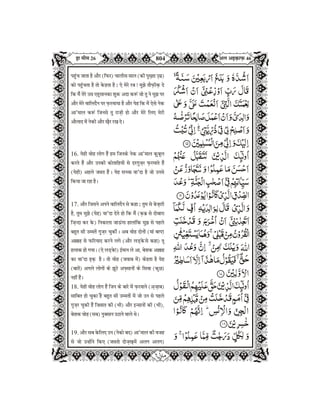 हा मीम 26 804 अल अह़क़ाफ़ 46
पहुंच जाता है और (फिर) चालीस साल (की पुख़्ता उम्र)
को पहुंचता है तो केहता है : ऐ मेरे रब ! मुझे तौफ़ीक़ दे
कि मैं तेरे उस एह़सानका शुक्र अदा करूं जो तू ने मुझ पर
और मेरे वालिदैन पर फ़रमाया है और येह कि मैं ऐसे नेक
आ'माल करूं जिनसे तू राज़ी हो और मेरे लिए मेरी
औलाद में नेकी और ख़ैर रख दे।
16. येही वोह लोग हैं हम जिनके नेक आ'माल क़ुबूल
करते हैं और उनकी कोताहियों से दरगुज़र फ़रमाते हैं
(येही) अहले जन्नत हैं। येह सच्चा वा'दा है जो उनसे
किया जा रहा है।
17. और जिसने अपने वालिदैन से कहा : तुम से बेज़ारी
है, तुम मुझे (येह) वा'दा देते हो कि मैं (क़ब्र से दोबारा
ज़िन्दा कर के) निकाला जाऊंगा हालांकि मुझ से पहले
बहुत सी उम्मतें गुज़र चुकीं। अब वोह दोनों (मां बाप)
अल्लाह से फ़रियाद करने लगे (और लड़केसे कहा) तू
हलाक होगा। (ऐ लड़के !) ईमान ले आ, बेशक अल्लाह
का वा'दा ह़क़ है। तो वोह (जवाब में) केहता है येह
(बातें) अगले लोगों के झूटे अफ़सानों के सिवा (कुछ)
नहीं हैं।
18. येही वोह लोग हैं जिन के बारे में फ़रमाने (अज़ाब)
साबित हो चुका है बहुत सी उम्मतों में जो उन से पहले
गुज़र चुकी हैं जिन्नात की (भी) और इन्सानों की (भी),
बेशक वोह (सब) नुक़्सान उठाने वाले थे।
19. और सब केलिए उन (नेको बद) आ'माल की वजह
से जो उन्होंने किए (जन्नतो दोज़ख़में अलग अलग)
اَشُدَّهٗ وَ بَلَغَ اَرْبَعِيْنَ سَنَةً ۙ
قَالَ رَبِّ اَوْزِعْنِيْۤ اَنْ اَشْكُرَ
نِعْمَتَكَ الَّتِيْۤ اَنْعَمْتَ عَلَيَّ وَ عَلٰى
وَالِدَيَّ وَ اَنْ اَعْمَلَ صَالِحًا تَرْضٰىهُ
وَ اَصْلِحْ لِيْ فِيْ ذُرِّيَّتِيْ ۚ اِنِّيْ تُبْتُ
اِلَيْكَ وَ اِنِّيْ مِنَ الْمُسْلِمِيْنَ
اُولٰٓئِكَ الَّذِيْنَ نَتَقَبَّلُ عَنْهُمْ
اَحْسَنَ مَا عَمِلُوْا وَ نَتَجَاوَزُ عَنْ
سَيِّاٰتِهِمْ فِيْۤ اَصْحٰبِ الْجَنَّةِ ؕ وَعْدَ
الصِّدْقِ الَّذِيْ كَانُوْا يُوْعَدُوْنَ
وَ الَّذِيْ قَالَ لِوَالِدَيْهِ اُفٍّ لَّكُمَاۤ
اَتَعِدٰنِنِيْۤ اَنْ اُخْرَجَ وَ قَدْ خَلَتِ
الْقُرُوْنُ مِنْ قَبْلِيْ ۚ وَ هُمَا يَسْتَغِيْثٰنِ
اللّٰهَ وَيْلَكَ اٰمِنْ ۖۗ اِنَّ وَعْدَ اللّٰهِ
حَقٌّ ۖۚ فَيَقُوْلُ مَا هٰذَاۤ اِلَّاۤ اَسَاطِيْرُ
الْاَوَّلِيْنَ
اُولٰٓئِكَ الَّذِيْنَ حَقَّ عَلَيْهِمُ الْقَوْلُ
فِيْۤ اُمَمٍ قَدْ خَلَتْ مِنْ قَبْلِهِمْ مِّنَ
الْجِنِّ وَ الْاِنْسِ ؕ اِنَّهُمْ كَانُوْا
خٰسِرِيْنَ
وَ لِكُلٍّ دَرَجٰتٌ مِّمَّا عَمِلُوْا ۚ وَ